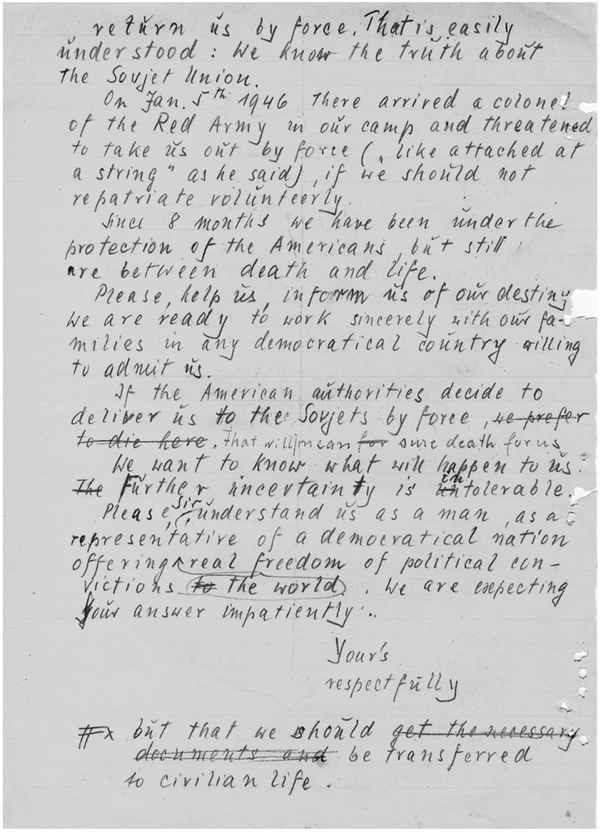 return us by force. That is easily
understood: We know the truth about
the Sovjet Union.
On Jan. 5th 1946 there arrived a colonel
of the Red Army in our camp and threatened
to take us out by force („like attached at
a string" as he said), if we should not
repatriate volunteerly.
Since 8 months we have been under the
protection of the Americans, but still
are between death and life.
Please, help us, inform us of our destiny
We are ready to work sincerely with our fa-
milies in any democratical country willing
to admit us.
If the American authorities decide to
deliver us to the Sovjets by force, we prefer
to die here. that will mean for sure death for us
We want to know what will happen to us.
The Further uncertainty is un in tolerable.
Please, Sir, understand us as a man, as a
representative of a democratical nation
offering real freedom of political con-
victions to the world. We are expecting
your answer impatiently..
Your's
respectfully
# x but that we should get the necessary
documents and be transferred
to civilian life.